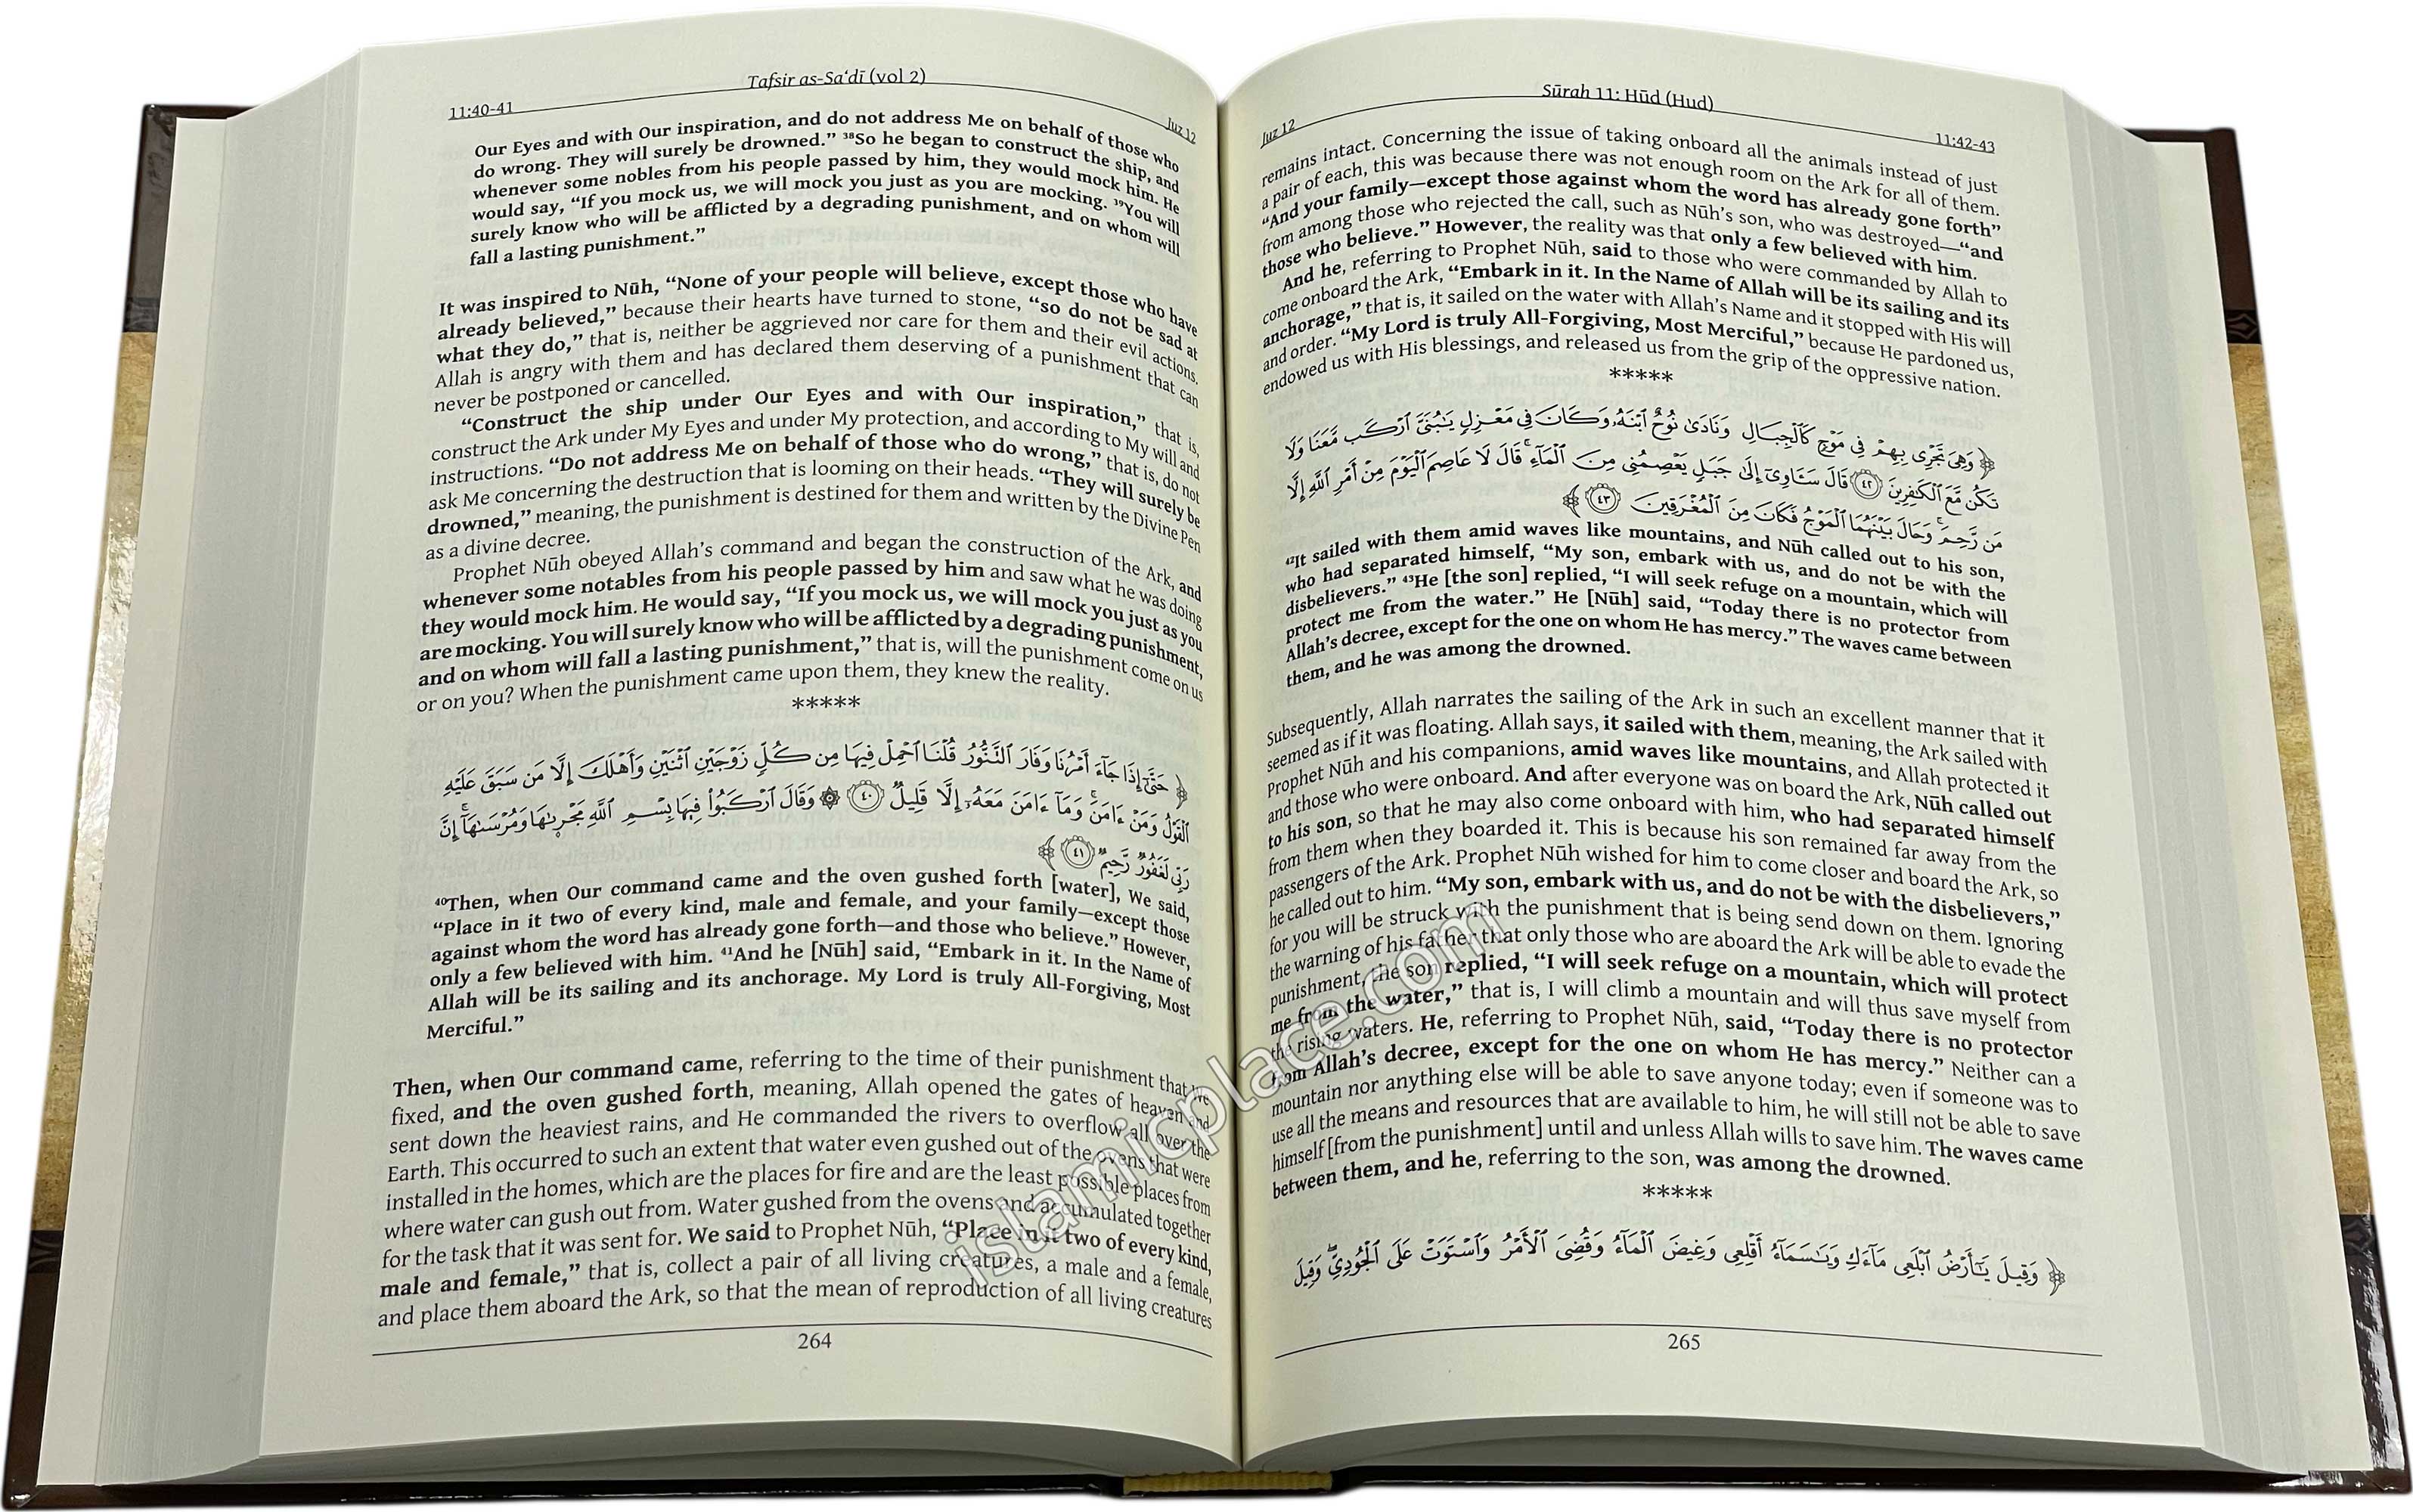 Tafsir as-Sa‘dī (vol 2)
11:40-41
Juz 12
Our Eyes and with Our inspiration, and do not address Me on behalf of those who
do wrong. They will surely be drowned.” ³⁸So he began to construct the ship, and
whenever some nobles from his people passed by him, they would mock him. He
would say, “If you mock us, we will mock you just as you are mocking. ³⁹You will
surely know who will be afflicted by a degrading punishment, and on whom will
fall a lasting punishment.”
It was inspired to Nūh, “None of your people will believe, except those who have
already believed,” because their hearts have turned to stone, “so do not be sad at
what they do,” that is, neither be aggrieved nor care for them and their evil actions.
Allah is angry with them and has declared them deserving of a punishment that can
never be postponed or cancelled.
“Construct the ship under Our Eyes and with Our inspiration,” that is,
construct the Ark under My Eyes and under My protection, and according to My will and
instructions. “Do not address Me on behalf of those who do wrong,” that is, do not
ask Me concerning the destruction that is looming on their heads. “They will surely be
drowned,” meaning, the punishment is destined for them and written by the Divine Pen
as a divine decree.
Prophet Nūh obeyed Allah’s command and began the construction of the Ark, and
whenever some notables from his people passed by him and saw what he was doing
they would mock him. He would say, “If you mock us, we will mock you just as you
are mocking. You will surely know who will be afflicted by a degrading punishment,
and on whom will fall a lasting punishment,” that is, will the punishment come on us
or on you? When the punishment came upon them, they knew the reality.
*****
﴿ حَتَّىٰٓ إِذَا جَآءَ أَمْرُنَا وَفَارَ ٱلتَّنُّورُ قُلْنَا ٱحْمِلْ فِيهَا مِن كُلٍّ زَوْجَيْنِ ٱثْنَيْنِ وَأَهْلَكَ إِلَّا مَن سَبَقَ عَلَيْهِ
ٱلْقَوْلُ وَمَنْ ءَامَنَ ۚ وَمَآ ءَامَنَ مَعَهُۥٓ إِلَّا قَلِيلٌ ۝٤٠ ۞ وَقَالَ ٱرْكَبُوا۟ فِيهَا بِسْمِ ٱللَّهِ مَجْر۪ىٰهَا وَمُرْسَىٰهَآ ۚ إِنَّ
رَبِّى لَغَفُورٌ رَّحِيمٌ ۝٤١ ﴾
⁴⁰Then, when Our command came and the oven gushed forth [water], We said,
“Place in it two of every kind, male and female, and your family—except those
against whom the word has already gone forth—and those who believe.” However,
only a few believed with him. ⁴¹And he [Nūh] said, “Embark in it. In the Name of
Allah will be its sailing and its anchorage. My Lord is truly All-Forgiving, Most
Merciful.”
Then, when Our command came, referring to the time of their punishment that We
fixed, and the oven gushed forth, meaning, Allah opened the gates of heaven and
sent down the heaviest rains, and He commanded the rivers to overflow all over the
Earth. This occurred to such an extent that water even gushed out of the ovens that were
installed in the homes, which are the places for fire and are the least possible places from
where water can gush out from. Water gushed from the ovens and accumulated together
for the task that it was sent for. We said to Prophet Nūh, “Place in it two of every kind,
male and female,” that is, collect a pair of all living creatures, a male and a female,
and place them aboard the Ark, so that the mean of reproduction of all living creatures
264
Sūrah 11: Hūd (Hud)
Juz 12
11:42-43
remains intact. Concerning the issue of taking onboard all the animals instead of just
a pair of each, this was because there was not enough room on the Ark for all of them.
“And your family—except those against whom the word has already gone forth”
from among those who rejected the call, such as Nūh’s son, who was destroyed—“and
those who believe.” However, the reality was that only a few believed with him.
And he, referring to Prophet Nūh, said to those who were commanded by Allah to
come onboard the Ark, “Embark in it. In the Name of Allah will be its sailing and its
anchorage,” that is, it sailed on the water with Allah’s Name and it stopped with His will
and order. “My Lord is truly All-Forgiving, Most Merciful,” because He pardoned us,
endowed us with His blessings, and released us from the grip of the oppressive nation.
*****
﴿ وَهِىَ تَجْرِى بِهِمْ فِى مَوْجٍ كَٱلْجِبَالِ وَنَادَىٰ نُوحٌ ٱبْنَهُۥ وَكَانَ فِى مَعْزِلٍ يَـٰبُنَىَّ ٱرْكَب مَّعَنَا وَلَا
تَكُن مَّعَ ٱلْكَـٰفِرِينَ ۝٤٢ قَالَ سَـَٔاوِىٓ إِلَىٰ جَبَلٍ يَعْصِمُنِى مِنَ ٱلْمَآءِ ۚ قَالَ لَا عَاصِمَ ٱلْيَوْمَ مِنْ أَمْرِ ٱللَّهِ إِلَّا
مَن رَّحِمَ ۚ وَحَالَ بَيْنَهُمَا ٱلْمَوْجُ فَكَانَ مِنَ ٱلْمُغْرَقِينَ ۝٤٣ ﴾
⁴²It sailed with them amid waves like mountains, and Nūh called out to his son,
who had separated himself, “My son, embark with us, and do not be with the
disbelievers.” ⁴³He [the son] replied, “I will seek refuge on a mountain, which will
protect me from the water.” He [Nūh] said, “Today there is no protector from
Allah’s decree, except for the one on whom He has mercy.” The waves came between
them, and he was among the drowned.
Subsequently, Allah narrates the sailing of the Ark in such an excellent manner that it
seemed as if it was floating. Allah says, it sailed with them, meaning, the Ark sailed with
Prophet Nūh and his companions, amid waves like mountains, and Allah protected it
and those who were onboard. And after everyone was on board the Ark, Nūh called out
to his son, so that he may also come onboard with him, who had separated himself
from them when they boarded it. This is because his son remained far away from the
passengers of the Ark. Prophet Nūh wished for him to come closer and board the Ark, so
he called out to him. “My son, embark with us, and do not be with the disbelievers,”
for you will be struck with the punishment that is being send down on them. Ignoring
the warning of his father that only those who are aboard the Ark will be able to evade the
punishment, the son replied, “I will seek refuge on a mountain, which will protect
me from the water,” that is, I will climb a mountain and will thus save myself from
the rising waters. He, referring to Prophet Nūh, said, “Today there is no protector
from Allah’s decree, except for the one on whom He has mercy.” Neither can a
mountain nor anything else will be able to save anyone today; even if someone was to
use all the means and resources that are available to him, he will still not be able to save
himself [from the punishment] until and unless Allah wills to save him. The waves came
between them, and he, referring to the son, was among the drowned.
*****
﴿ وَقِيلَ يَـٰٓأَرْضُ ٱبْلَعِى مَآءَكِ وَيَـٰسَمَآءُ أَقْلِعِى وَغِيضَ ٱلْمَآءُ وَقُضِىَ ٱلْأَمْرُ وَٱسْتَوَتْ عَلَى ٱلْجُودِىِّ ۖ وَقِيلَ
265
islamicplace.com